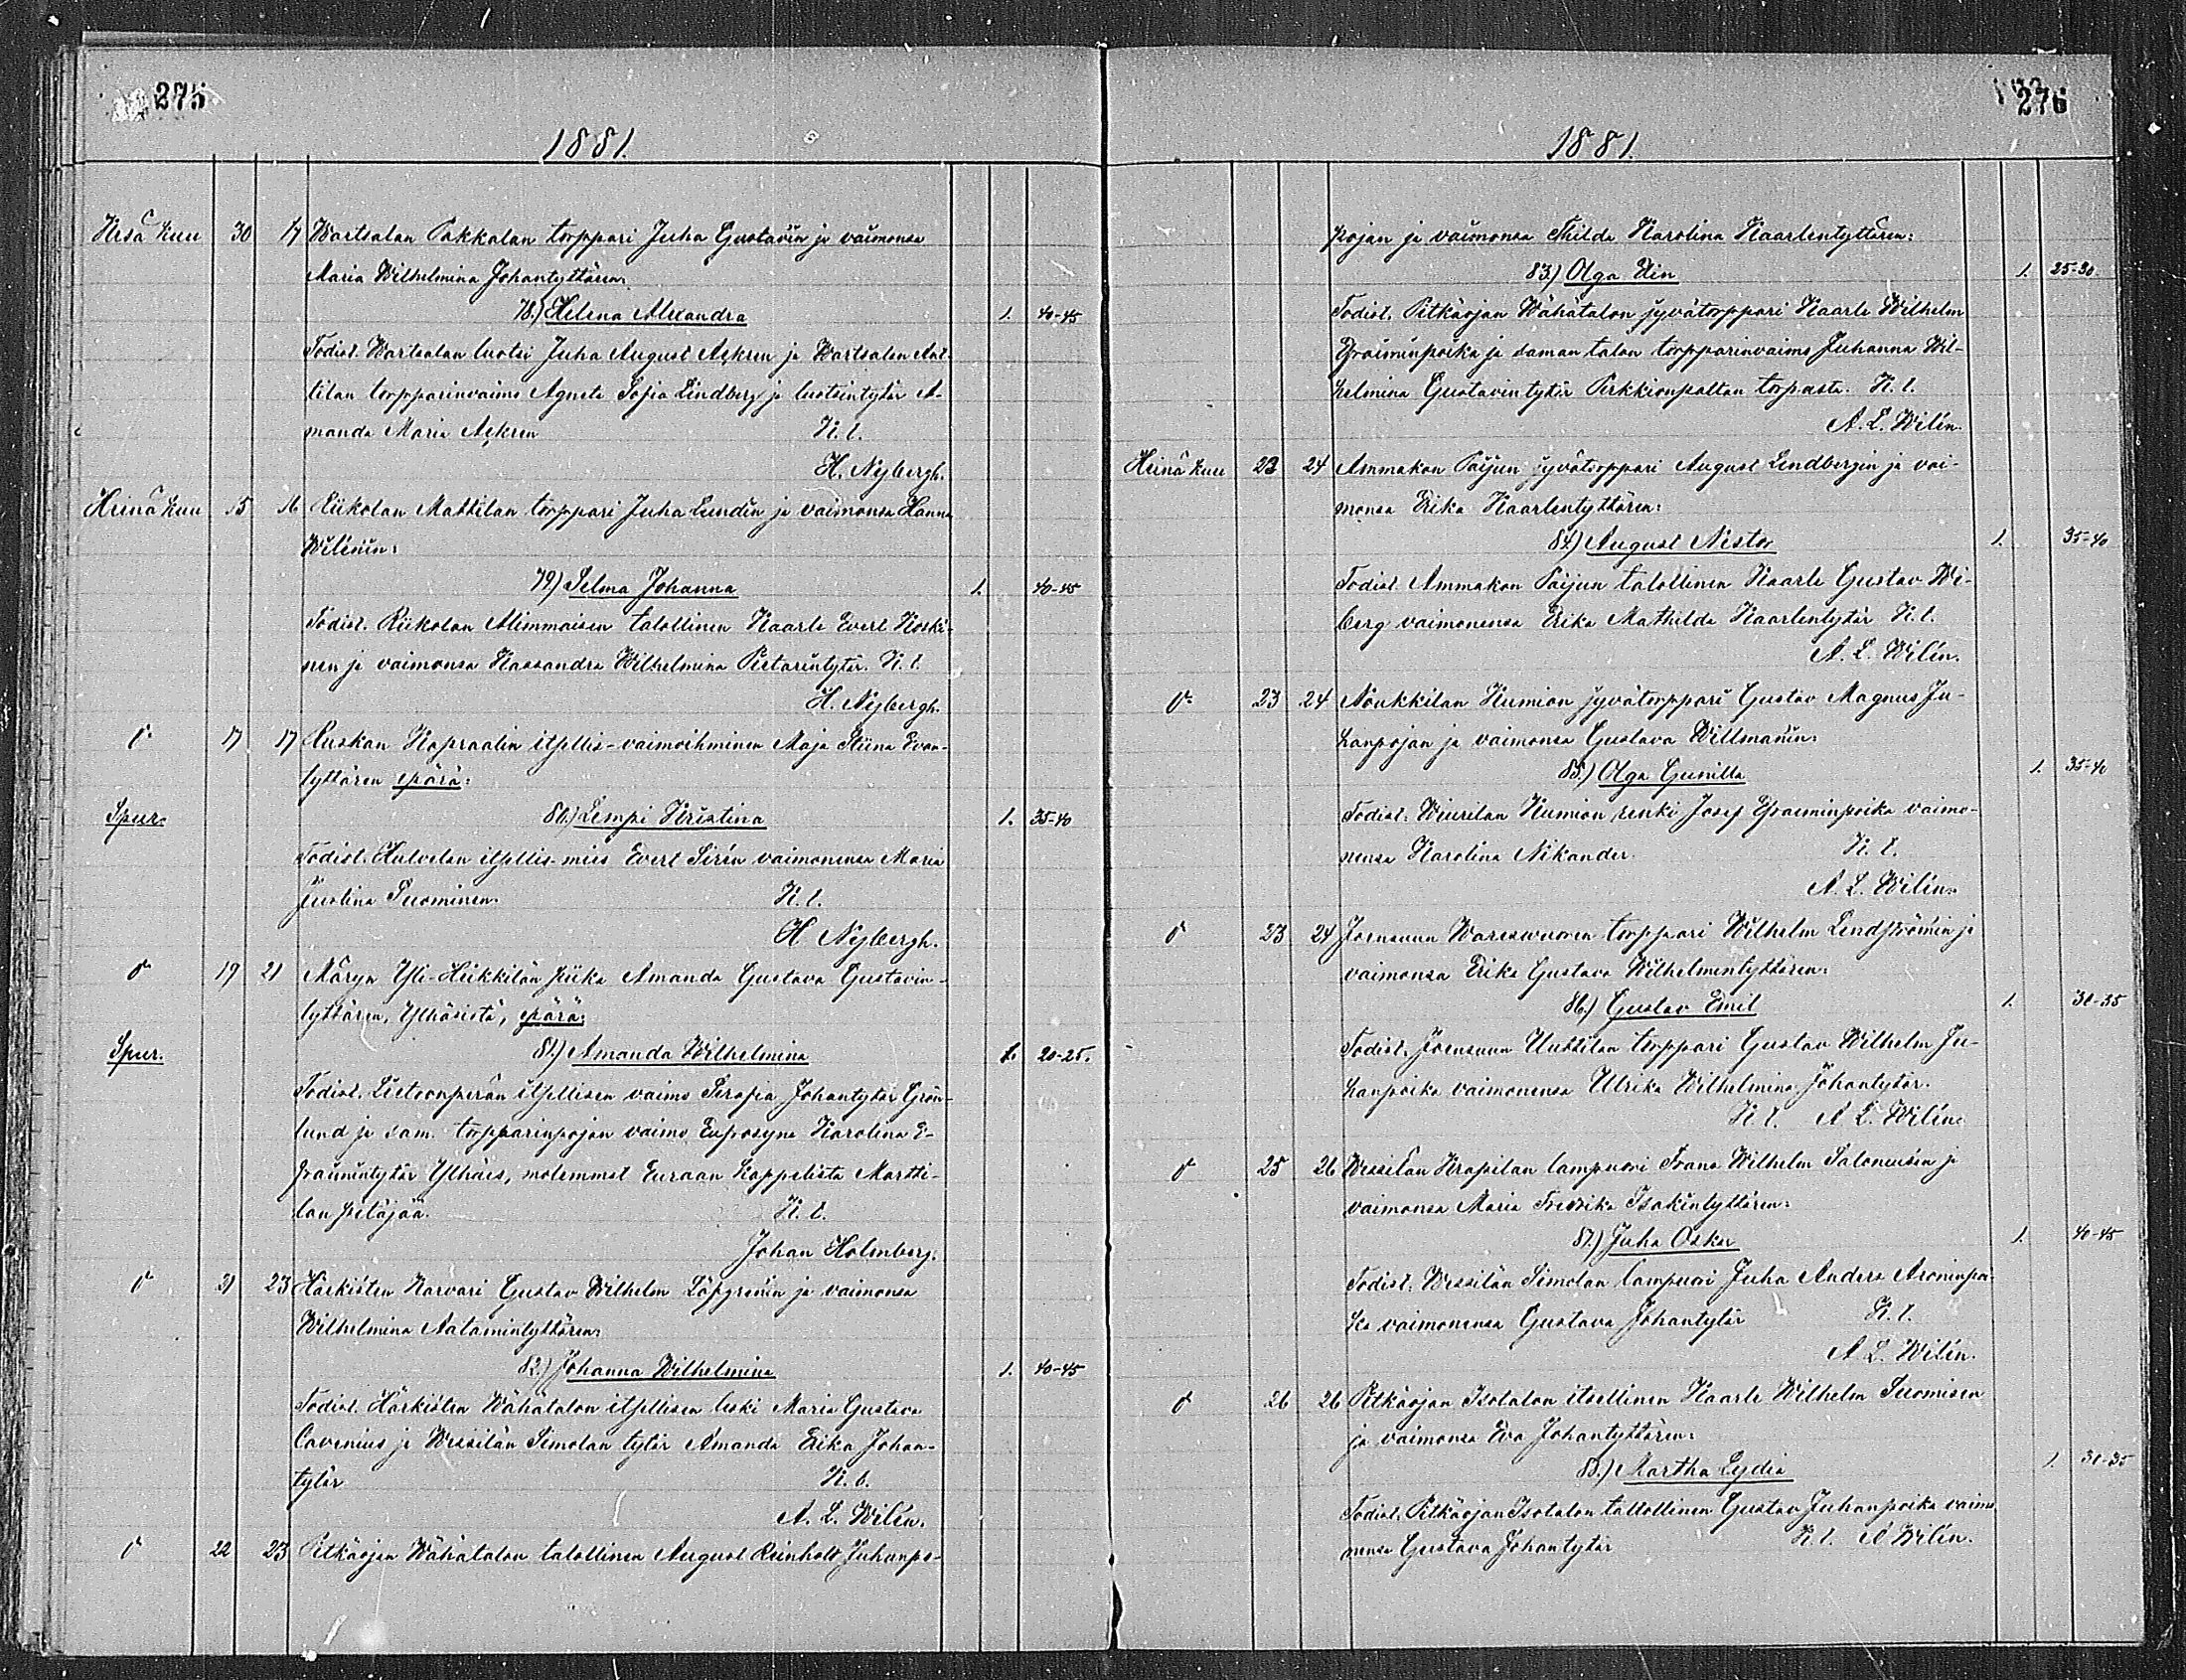 275
1881.
Kesä kuu 30 17 Wartsalan Pakkalan torppari Juha Gustavin ja vaimonsa
Maria Wilhelmina Johantyttären:
78.) Helena Alexandra 1. 40-45
Todist. Wartsalan luotsi Juha August Aekren ja Wartsalan Ant-
tilan torpparinvaimo Agneta Sofia Lindberg ja luotsintytär A-
manda Maria Aekren K. t.
H. Nybergh.
Heinä kuu 15 16 Riikolan Mattilan torppari Juha Lundin ja vaimonsa Hanna
Wilénin:
79.) Selma Johanna 1. 40-45
Todist. Riikolan Alimmaisen talollinen Kaarle Evert Koski-
nen ja vaimonsa Kassandra Wilhelmina Pietarintytär. K. t.
H. Nybergh.
d:o 17 17 Ruskan Kapraalin itsellis-vaimoihminen Maja Stiina Evan-
tyttären epärä:
Spur. 80.) Lempi Kristina 1. 35-40
Todist. Hulvelan itsellis-mies Evert Sirén vaimonensa Maria
Juslina Suominen. K. t.
H Nybergh.
d:o 19 21 Märyn Yli-Heikkilän piika Amanda Gustava Gustavin-
tyttären, Yläneistä, epärä:
Spur. 81.) Amanda Wilhelmina 1. 20-25.
Todist. Lietsonperän itsellisen vaimo Serafia Johantytär Grön-
lund ja sam. torpparinpojan vaimo Eufrosyne Karolina E-
fraimintytär Ylhäis, molemmat Euraan Kappelista Martti-
lan pitäjää. K. t.
Johan Holmberg.
d:o 21 23 Härkisten Karvari Gustav Wilhelm Löfgrenin ja vaimonsa
Wilhelmina Aatamintyttären:
82.) Johanna Wilhelmina 1. 40-45
Todist. Härkisten Wähätalon itsellisen leski Maria Gustava
Cavenius ja Wessilän Simolan tytär Amanda Erika Johan-
tytär K. t.
A. L. Wilén.
d:o 22 23 Pitkäojan Wähätalon talollinen August Reinholt Juhanpo-
276
1881.
pojan ja vaimonsa Thilda Karolina Kaarlentyttären:
83.) Olga Elin 1. 25-30.
Todist. Pitkäojan Wähätalon jyvätorppari Kaarle Wilhelm
Efraiminpoika ja saman talon torpparinvaimo Juhanna Wil-
helmina Gustavintytär Pirkkionpaltan torpasta. K. t.
A. L. Wilén.
Heinä kuu 22 24 Ammakon Paijun jyvätorppari August Lindbergin ja vai-
monsa Erika Kaarlentyttären:
84.) August Nestor 1. 35-40
Todist. Ammakon Paijun talollinen Kaarle Gustav Wi-
berg vaimonensa Erika Mathilda Kaarlentytär K. t.
A. L. Wilén.
d:o 23 24 Noukkilan Kumion jyvätorppari Gustav Magnus Ju-
hanpojan ja vaimonsa Gustava Willmanin:
85.) Olga Gunilla 1. 35-40
Todist. Wiurilan Kumion renki Josef Efraiminpoika vaimo-
nensa Karolina Nikander. K. t.
A. L. Wilén.
d:o 23 24 Joensuun Wareswuoren torppari Wilhelm Lindströmin ja
vaimonsa Erika Gustava Wilhelmintyttären:
86.) Gustav Emil 1. 30-35
Todist. Joensuun Uuttilan torppari Gustav Wilhelm Ju-
hanpoika vaimonensa Ulrika Wilhelmina Johantytär.
K. t. A L. Wilén.
d:o 25 26 Wessilän Krapilan lampuori Frans Wilhelm Salonenisen ja
vaimonsa Maria Fredrika Isakintyttären:
87.) Juha Oskar 1. 40-45
Todist. Wessilän Simolan lampuori Juha Anders Aroninpoi-
ka vaimonensa Gustava Johantytär K. t.
A L. Wilén.
d:o 26 26 Pitkäojan Isotalon itsellinen Kaarle Wilhelm Suomisen
ja vaimonsa Eva Johantyttären:
88.) Martha Lydia 1. 30-35
Todist. Pitkäojan Isotalon talollinen Gustav Juhanpoika vaimo-
nensa Gustava Johantytär K. t. A Wilén.